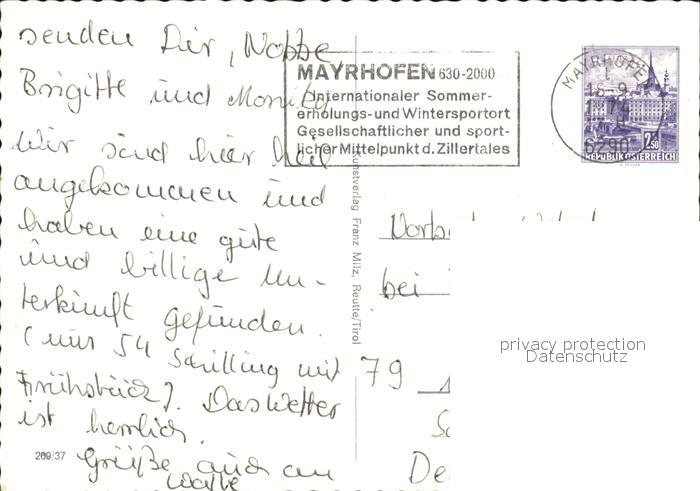 senden Dir, Nobbe
Brigitte und Monika
Wir sind hier heil
angekommen und
haben eine gute
und billige Un-
terkunft gefunden.
(nur 54 Schilling mit
Frühstück). Das Wetter
ist herrlich.
Grüße auch an
MAYRHOFEN 630-2000
Internationaler Sommer-
erholungs- und Wintersportort
Gesellschaftlicher und sport-
licher Mittelpunkt d. Zillertales
MAYRHOFEN
6290
2.50
REPUBLIK ÖSTERREICH
Kunstverlag Franz Milz, Reutte/Tirol
bei
79
De
privacy protection
Datenschutz
269/37